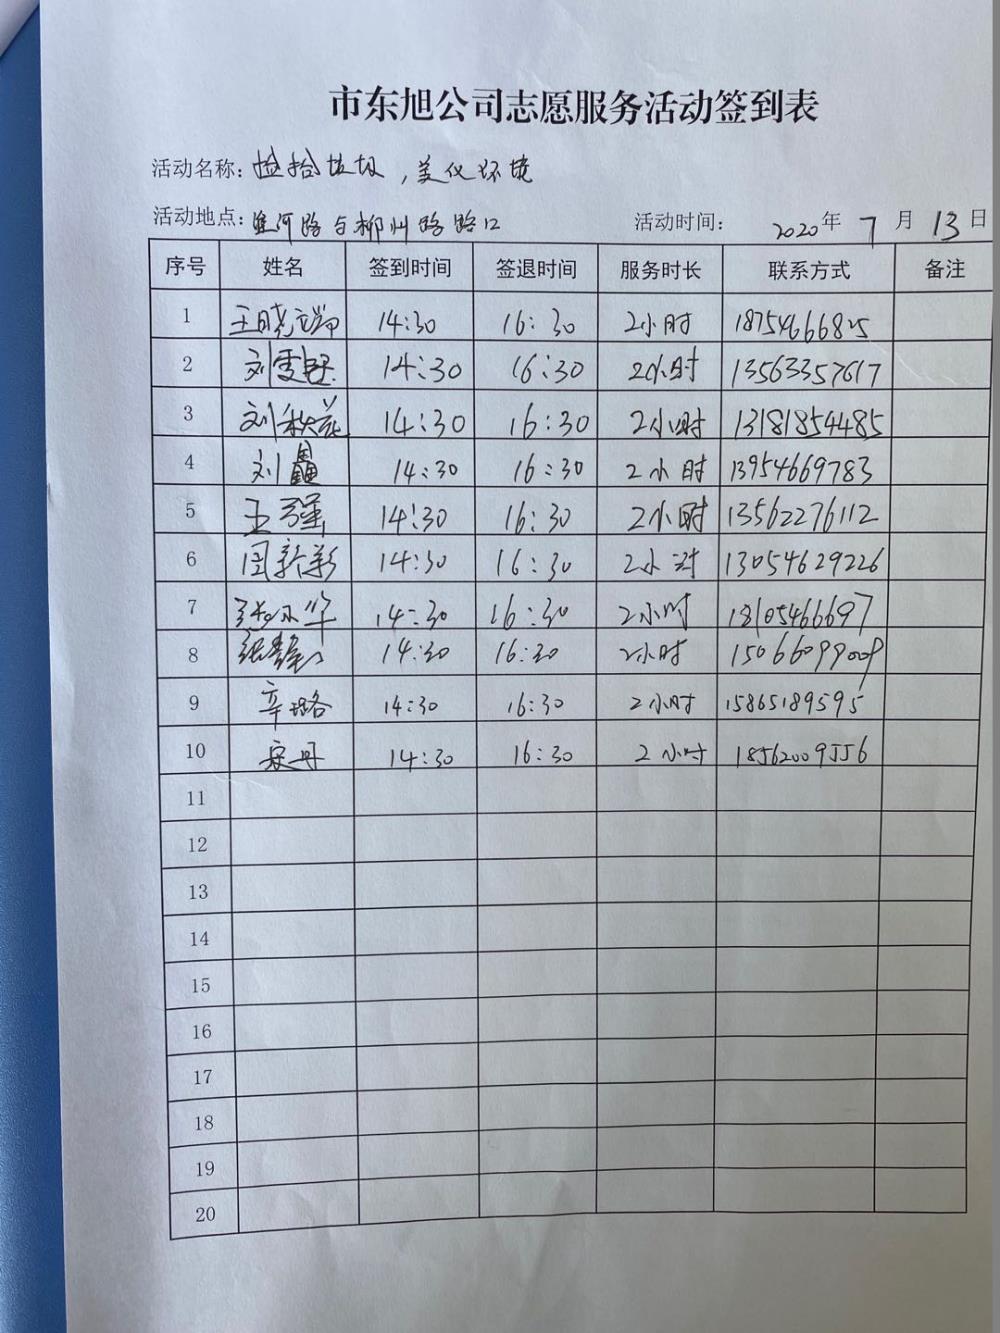 市东旭公司志愿服务活动签到表
活动名称: 捡拾垃圾,美化环境
活动地点: 淮河路与柳州路路口 活动时间: 2020年 7月 13日
序号 姓名 签到时间 签退时间 服务时长 联系方式 备注
1 王晓瑞 14:30 16:30 2小时 18754666825
2 刘雯 14:30 16:30 2小时 13563357617
3 刘秋花 14:30 16:30 2小时 13181854485
4 刘 14:30 16:30 2小时 13954669783
5 王强 14:30 16:30 2小时 13562276112
6 周新彩 14:30 16:30 2小时 13054629226
7 张小华 14:30 16:30 2小时 18105466697
8 张静 14:30 16:30 2小时 15066099009
9 辛璐 14:30 16:30 2小时 15865189595
10 宋丹 14:30 16:30 2小时 18562009556
11
12
13
14
15
16
17
18
19
20